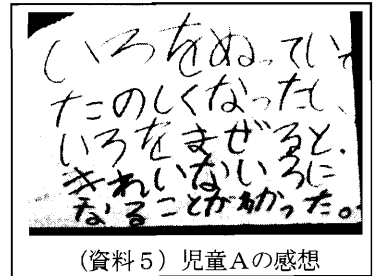 いろをぬってい
たのしくなったし、
いろをまぜると、
きれいないろに
なることがわかった。
(資料5) 児童Aの感想